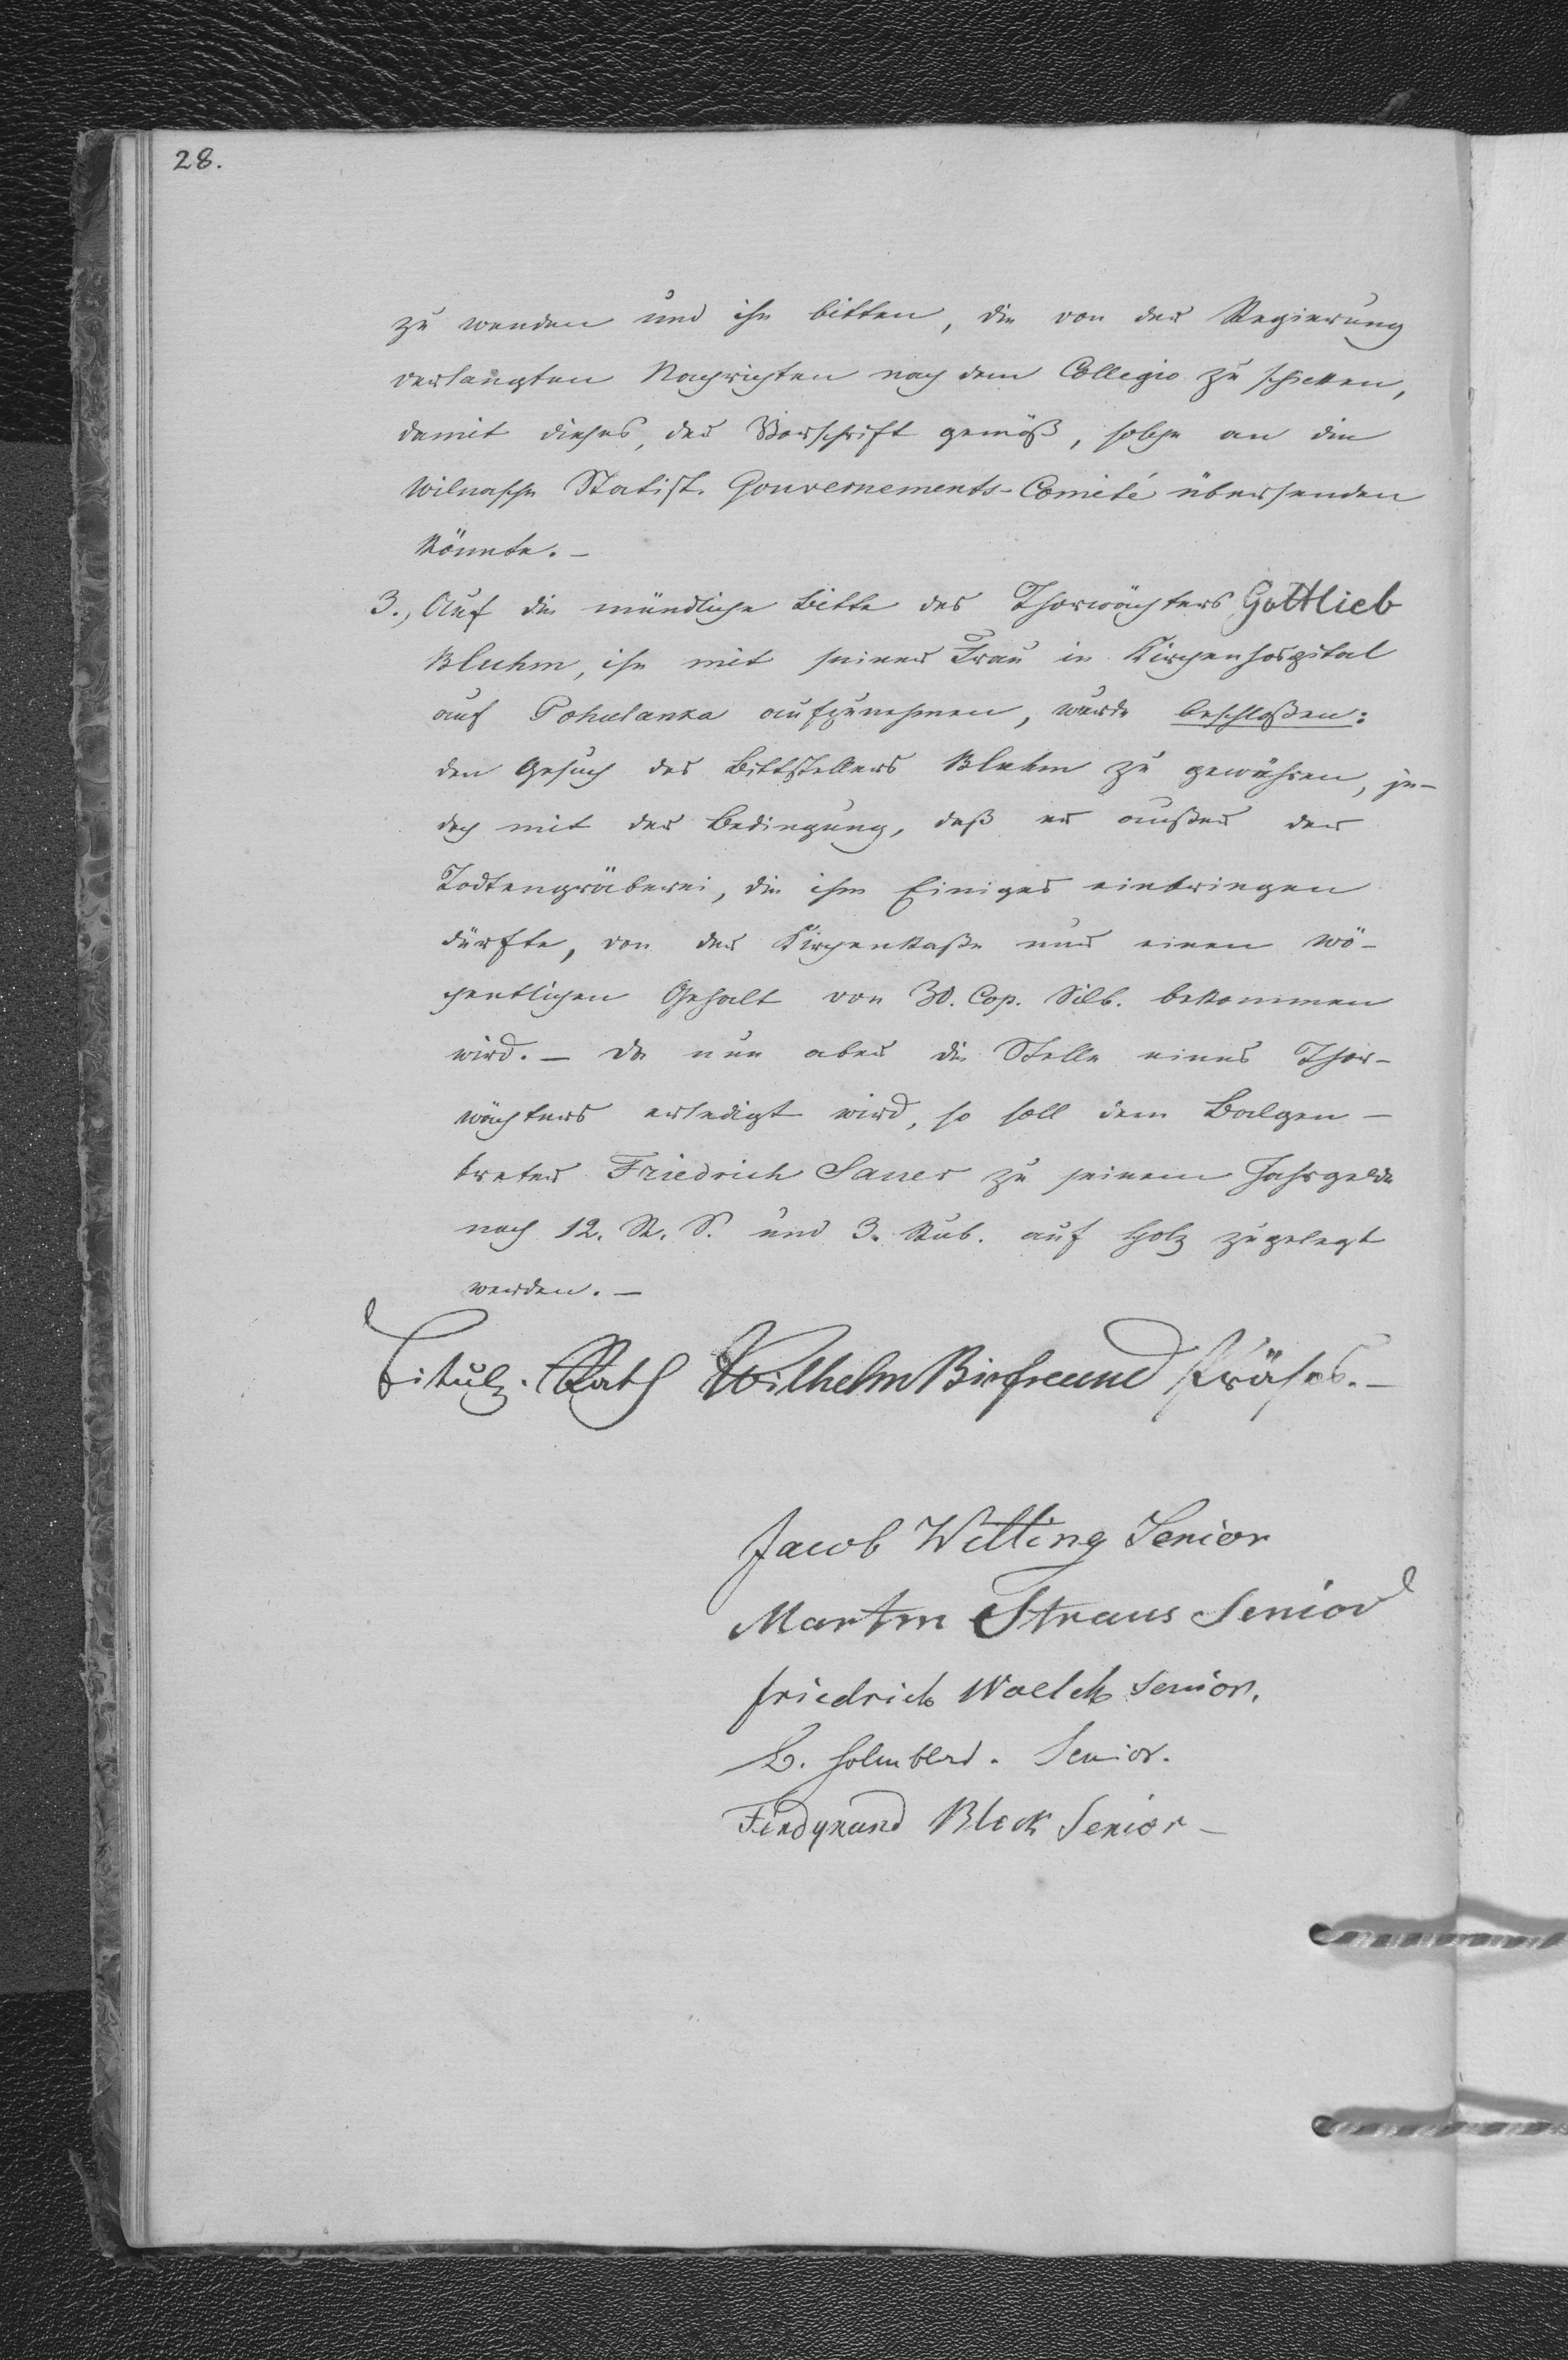 28.
zu wenden und ihn bitten, die von der Regierung
verlangten Nachrichten nach dem Collegio zu schicken,
damit dieses, der Vorschrift gemäß, solche an die
Wilnasche Statist. Gouvernements-Comité übersenden
könnte. —
3., Auf die mündliche Bitte des Thorwächters Gottlieb
Bluhm, ihn mit seiner Frau in Kirchenhospital
auf Pohulanka aufzunehmen, wurde beschloßen:
den Gesuch des Bittstellers Bluhm zu gewähren, je-
doch mit der Bedingung, daß er außer der
Todtengräberei, die ihm Einiges einbringen
dürfte, von der Kirchenkaße nur einen wö-
chentlichen Gehalt von 30. Cop. Silb. bekommen
wird. — Da nun aber die Stelle eines Thor-
wächters erledigt wird, so soll dem Balgen-
treter Friedrich Sauer zu seinem Jahrgelde
noch 12. R. S. und 3. Rub. auf Holz zugelegt
werden. —
Titulr. Rath Wilhelm Birfreund Präses. —
Jacob Witting Senior
Martin Straus Senior
Friedrich Woelck Senior.
L. Holmblad. Senior.
Ferdynand Bleck Senior —